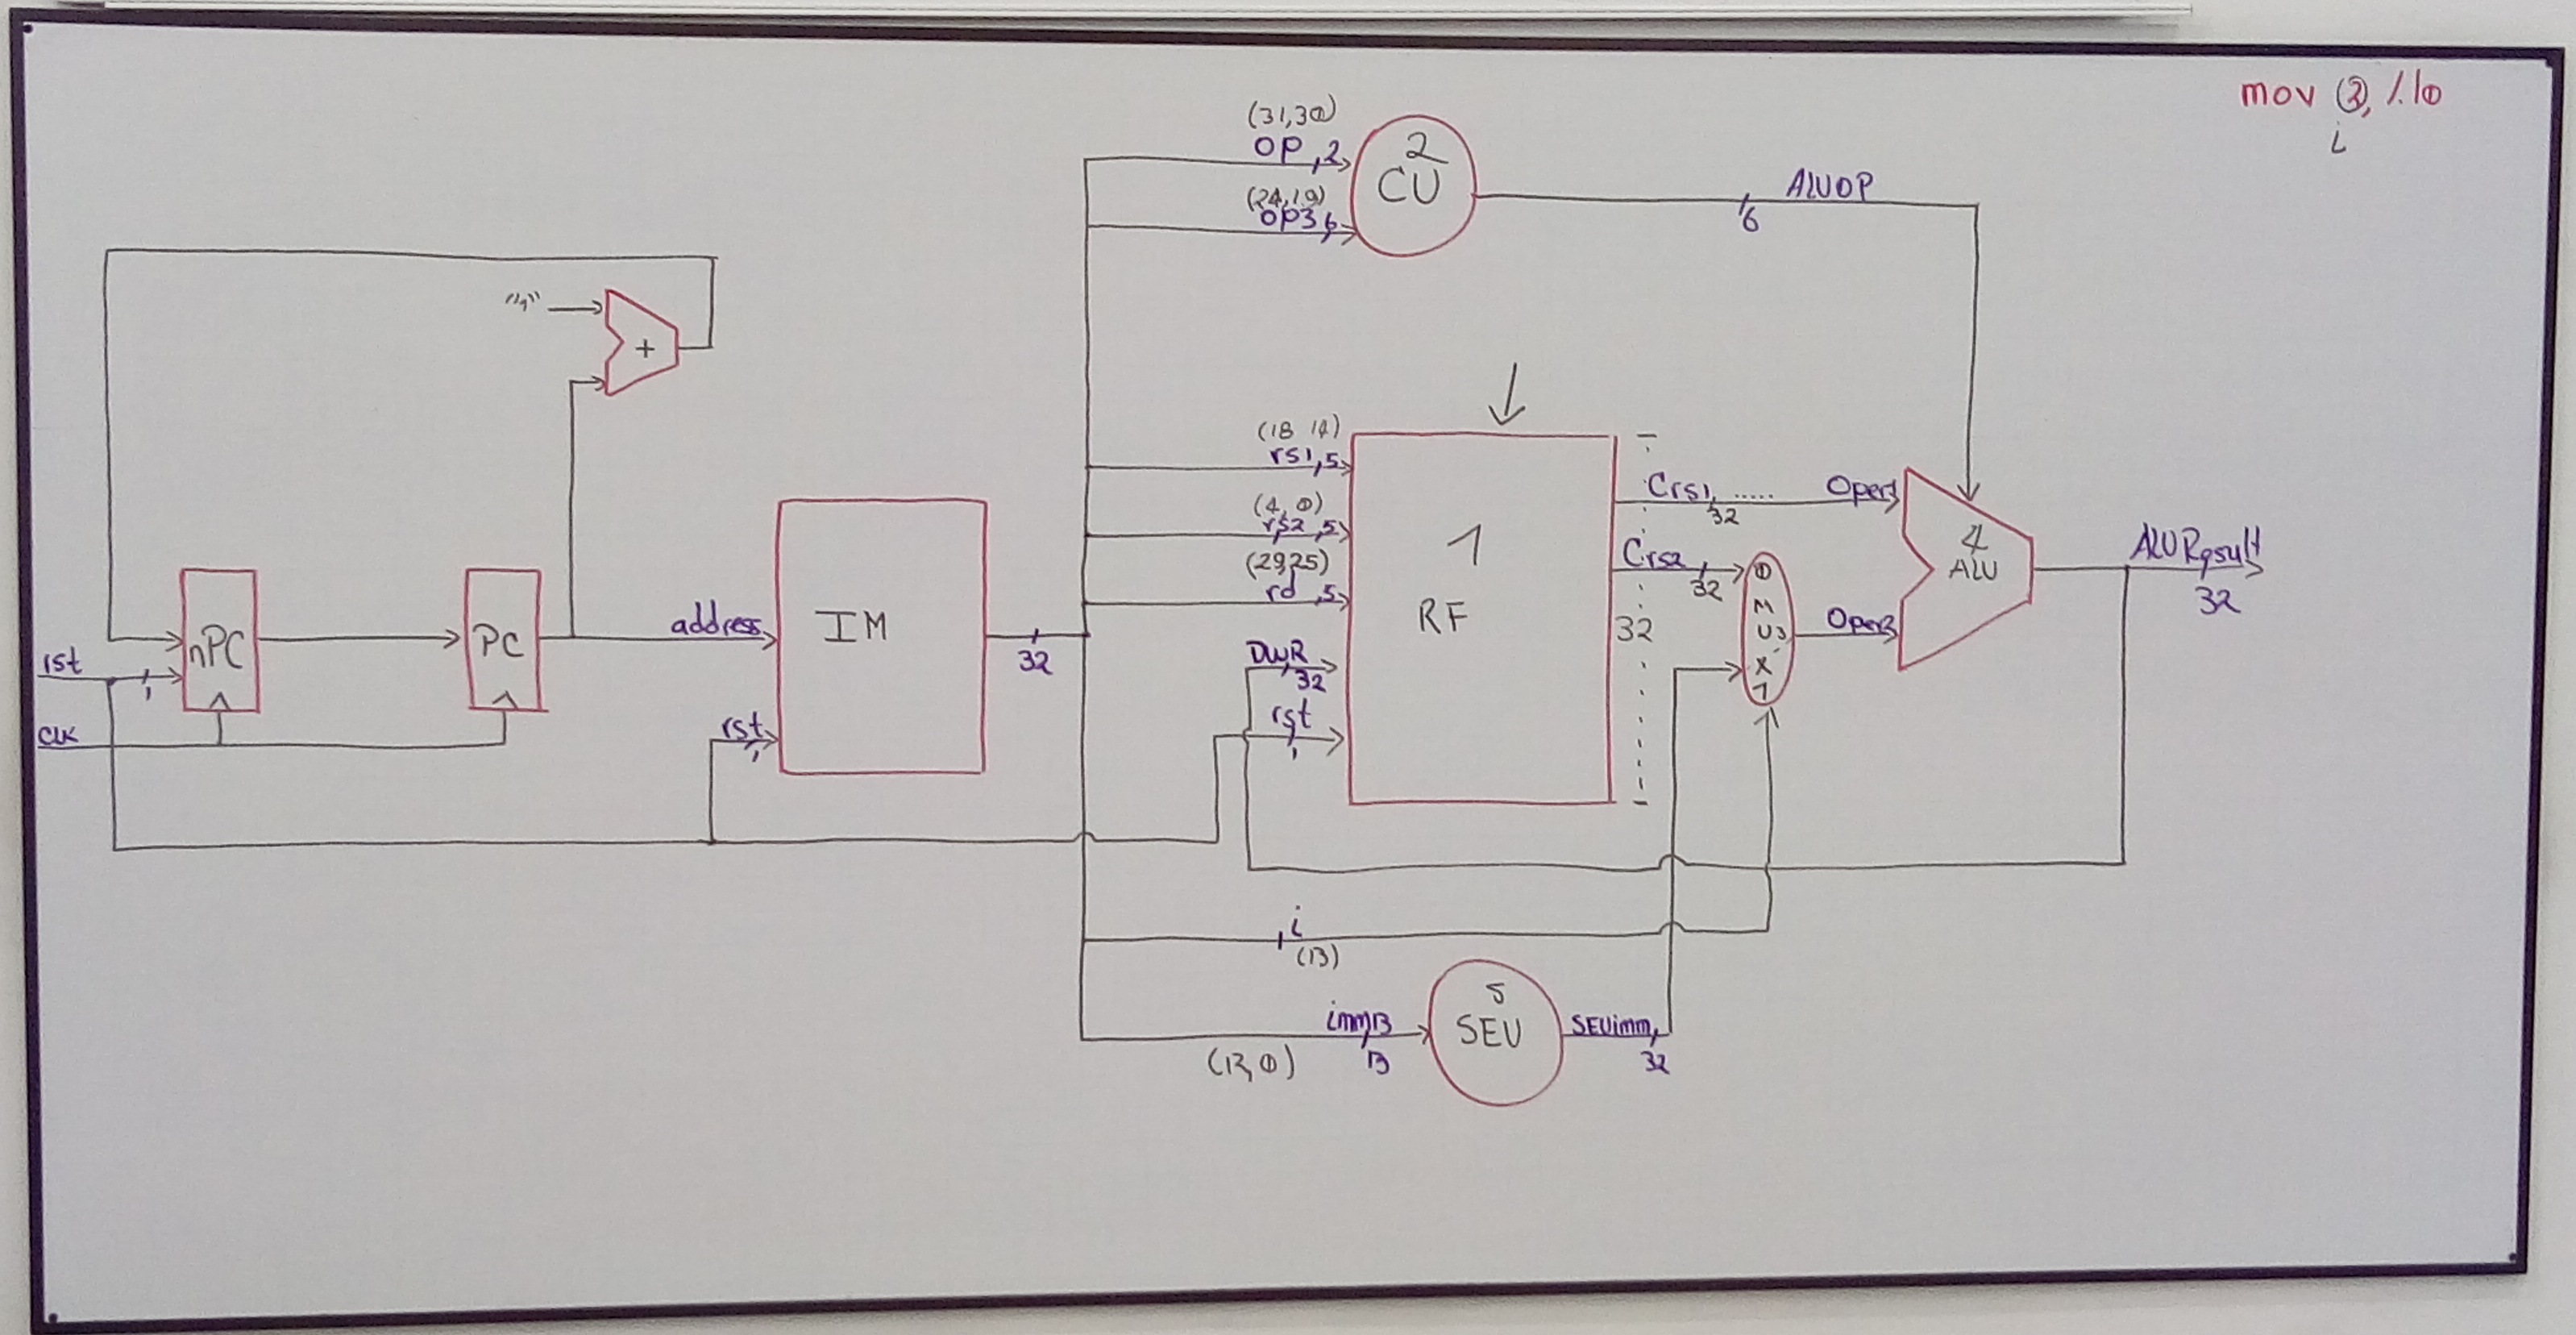 mov 3, %l0
i
(31,30)
OP,2
2
CU
(24,19)
OP3,6
ALUOP
6
"1"
+
(18 14)
rs1,5
(4,0)
rs2,5
(29,25)
rd,5
DWR
32
rst
1
1
RF
32
Crs1
32
Crs2
32
Oper1
0
M
U 3
X
1
4
ALU
ALUResult
32
nPC
PC
address
IM
32
rst
1
clk
rst
1
i
(13)
imm13
13
(12,0)
5
SEU
SEUimm
32